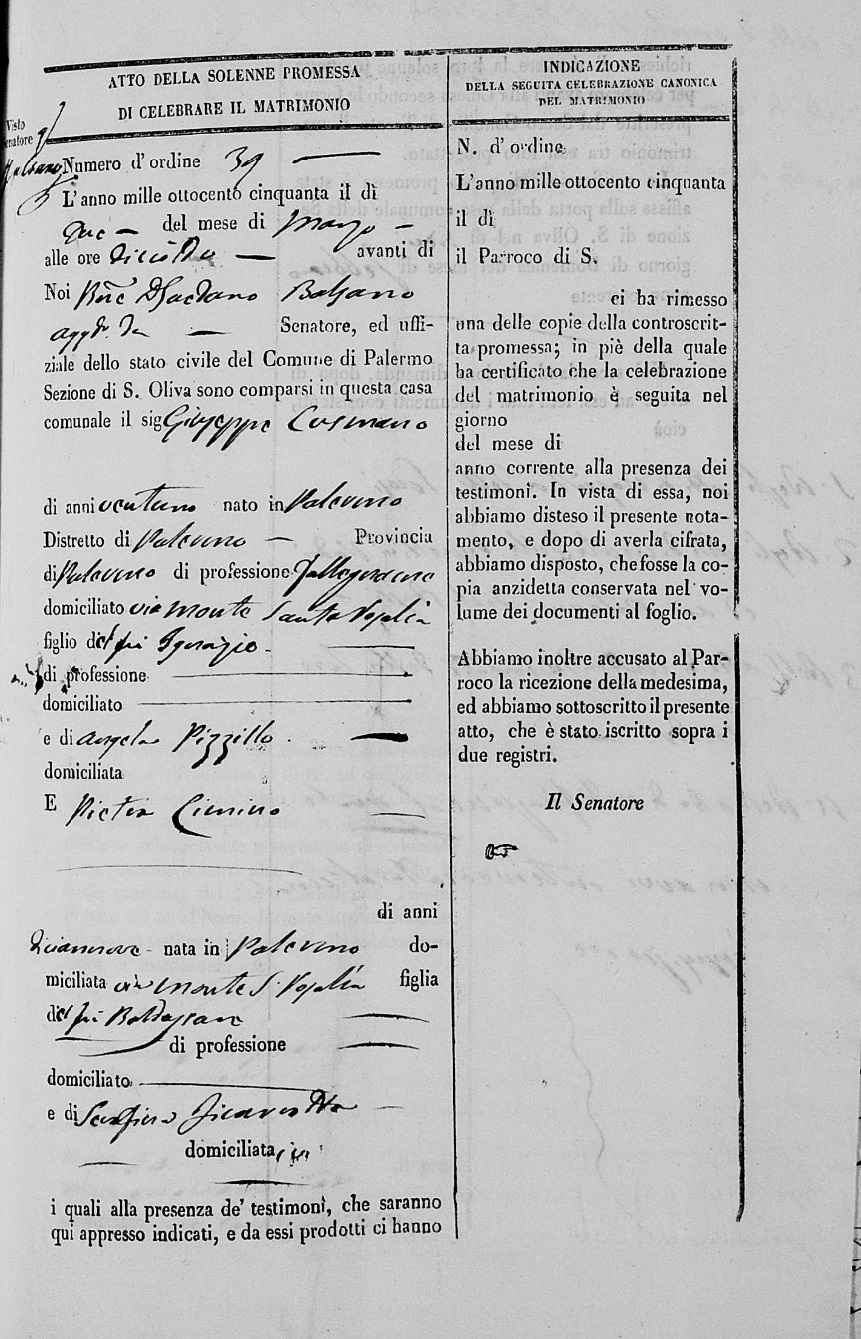 ATTO DELLA SOLENNE PROMESSA
DI CELEBRARE IL MATRIMONIO
Visto
Senatore
Numero d' ordine 39
L'anno mille ottocento cinquanta il dì
due del mese di Marzo
alle ore diciotto avanti di
Noi Gaetano Balsano
Senatore, ed uffi-
ziale dello stato civile del Comune di Palermo
Sezione di S. Oliva sono comparsi in questa casa
comunale il sig Giuseppe Cusmano
di anni ventuno nato in Palermo
Distretto di Palermo Provincia
di Palermo di professione Fallegname
domiciliato via Monte Santa Rosalia
figlio del fù Ignazio
di professione
domiciliato
e di Angela Pizzillo
domiciliata
E Pietra Cimino
di anni
diciannove nata in Palermo do-
miciliata via Monte S. Rosalia figlia
del fù Baldassare
di professione
domiciliato
e di
domiciliata ivi
i quali alla presenza de' testimonî, che saranno
qui appresso indicati, e da essi prodotti ci hanno
INDICAZIONE
DELLA SEGUITA CELEBRAZIONE CANONICA
DEL MATRIMONIO
N. d' ordine
L'anno mille ottocento cinquanta
il dì
il Parroco di S.
ci ha rimesso
una delle copie della controscrit-
ta promessa; in piè della quale
ha certificato che la celebrazione
del matrimonio è seguita nel
giorno
del mese di
anno corrente alla presenza dei
testimonî. In vista di essa, noi
abbiamo disteso il presente nota-
mento, e dopo di averla cifrata,
abbiamo disposto, che fosse la co-
pia anzidetta conservata nel vo-
lume dei documenti al foglio.
Abbiamo inoltre accusato al Par-
roco la ricezione della medesima,
ed abbiamo sottoscritto il presente
atto, che è stato iscritto sopra i
due registri.
Il Senatore